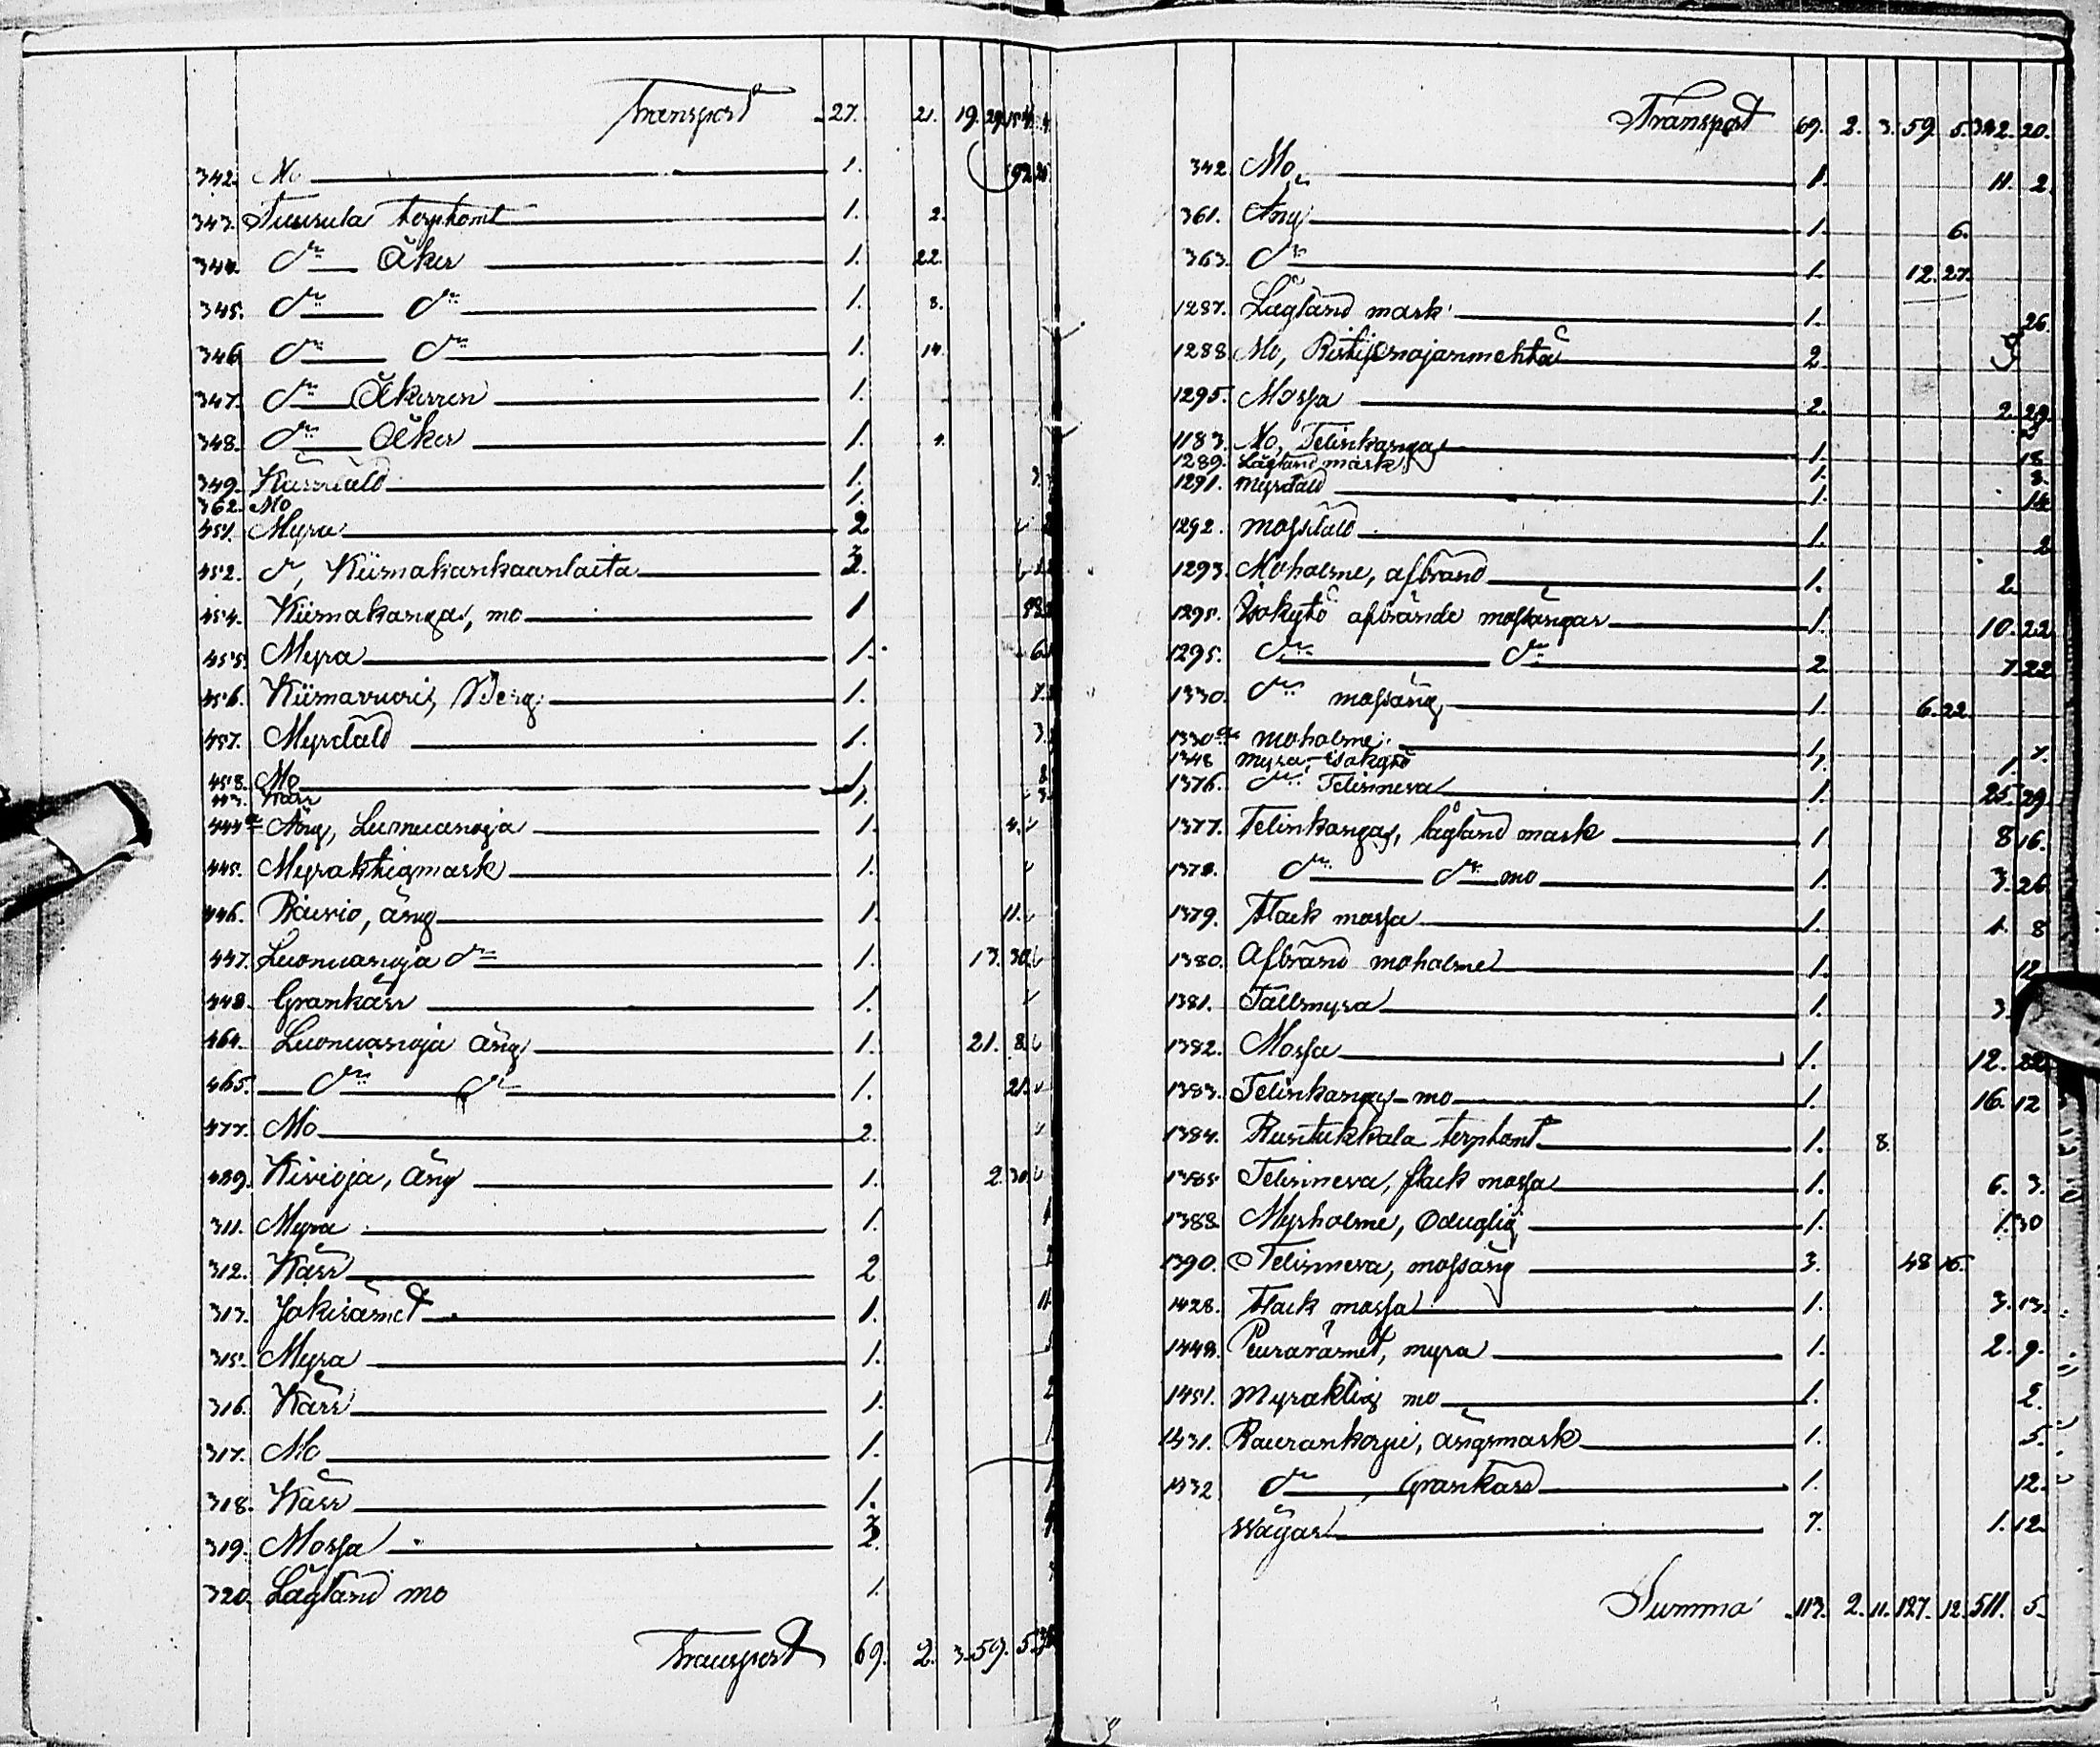 Transport 27. 21. 19. 29.
342. Mo 1.
343. Tuurula torptomt 1. 2.
344. do Åker 1. 22.
345. do do 1. 3.
346. do do 1. 14.
347. do Åkerren 1.
348. do Åker 1. 4.
349. 1. 3.
362. Mo 1.
451. Myra 2
452. do, Kiimakankaanlaita 2.
454. Kiimakangas, mo 1
455. Myra 1. 6.
456. Kiimavuori, Berg 1. 7.
457. Myrdäld 1. 3.
458. Mo 1.
443. Kärr 1.
444a Äng, Luonuanoja 1. 4.
445. Myraktigmark 1.
446. Räivio, äng 1. 11.
447. Luonuanoja do 1. 13. 30.
448. Grankärr 1.
464. Luonuanoja äng 1. 21. 8.
465. do do 1. 21.
477. Mo 2.
489. Kivioja, äng 1. 2. 30.
311. Myra 1.
312. Kärr 2
313. Jakirämet 1. 11.
315. Myra 1.
316. Kärr 1. 2
317. Mo 1.
318. Kärr 1.
319. Mossa 2.
320. Lågländ mo 1.
Transport 69. 2. 3. 59. 5.
Transport 69. 2. 3. 59. 5. 342. 20.
342. Mo 1. 11. 2.
361. Äng 1. 6.
363. do 1. 12. 27.
1287. Lågländ mark 1. 26.
1288. Mo, 2
1295. Mossa 2. 2. 29.
1183. Mo, Telinkangas 1. 18.
1289. Lågländ mark 1. 8.
1291. Myrdäld 1. 14.
1292. mossdäld 1. 2
1293. Moholme, afbränd 1. 2.
1295. Isokytö afbrände mossängar 1. 10. 22
1295. do do 2. 7. 22
1330. do mossäng 1. 6. 22.
1330a moholme 1. 7.
1348 myra, Isokytö 1. 1.
1376. do Telinneva 1. 25. 29.
1377. Telinkangas, lågländ mark 1. 8 16.
1378. do do mo 1. 3. 26.
1379. Flack mossa 1. 1. 8
1380. Afbränd moholme 1. 12.
1381. Tallmyra 1. 3.
1382. Mossa 1. 12. 22.
1383. Telinkangas mo 1. 16. 12
1384. Runtukkala torptomt 1. 8.
1385 Telinneva, flack mossa 1. 6. 3.
1388. Myrholme, oduglig 1. 1. 30
1390. Telinneva, mossäng 3. 48 15.
1428. Flack mossa 1. 3. 13.
1448. Peurarämet, myra 1. 2. 9.
1451. Myraktig mo 1. 2.
1431. Raurankorpi, ängsmark 1. 5.
1432 do Grankärr 1. 12.
Wägar 7. 1. 12.
Summa 113. 2. 11. 127. 12. 511. 5.